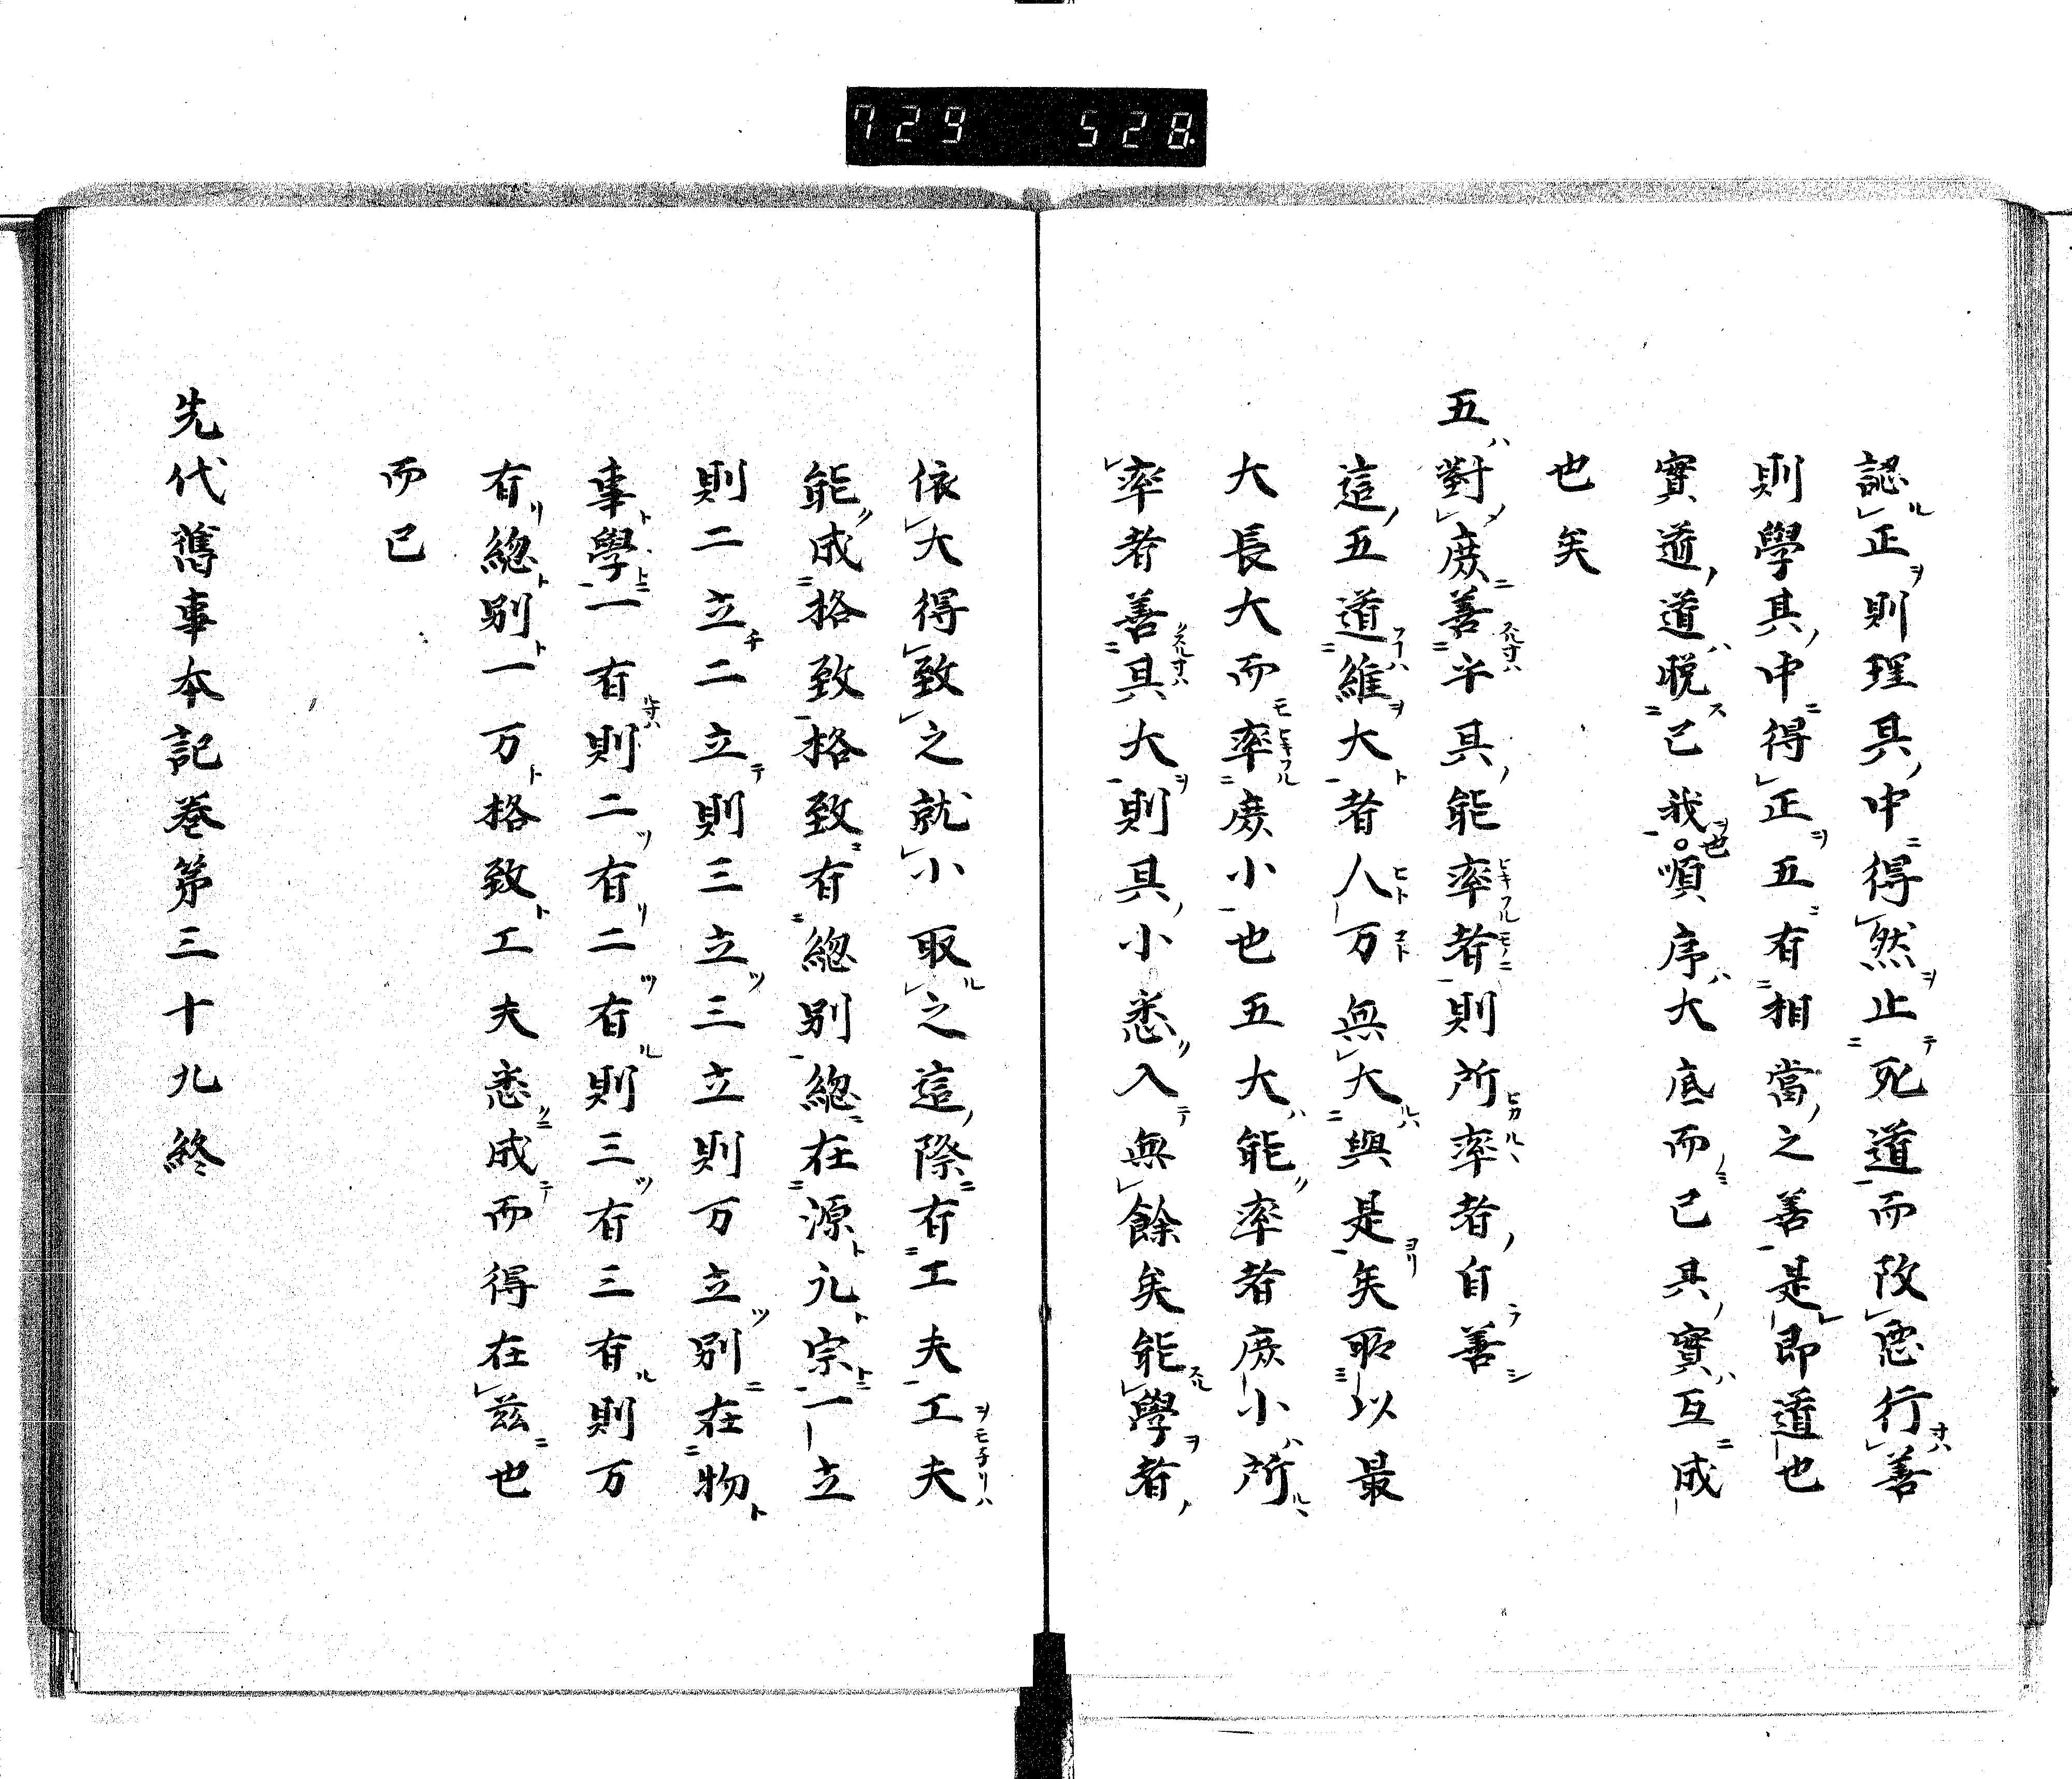 729 528
認正則理其中得然止死道而改惡行善
則學其中得正五有相當之善是即道也
實道道脱己我也順序大底而已其實互成
也矣
五對庶善平其能率者則所率者自善
這五道維大者人万無大與是矣耶以最
大長大而率庶小也五大能率者庶小所
率者善其大則其小悉入無餘矣能學者
依大得致之就小取之這際有工夫工夫
能成格致格致有總別總在源元宗一立
則二立二立則三立三立則万立別在物
事學一有則二有二有則三有三有則万
有總別一万格致工夫悉成而得在茲也
而已
先代舊事本記巻第三十九終